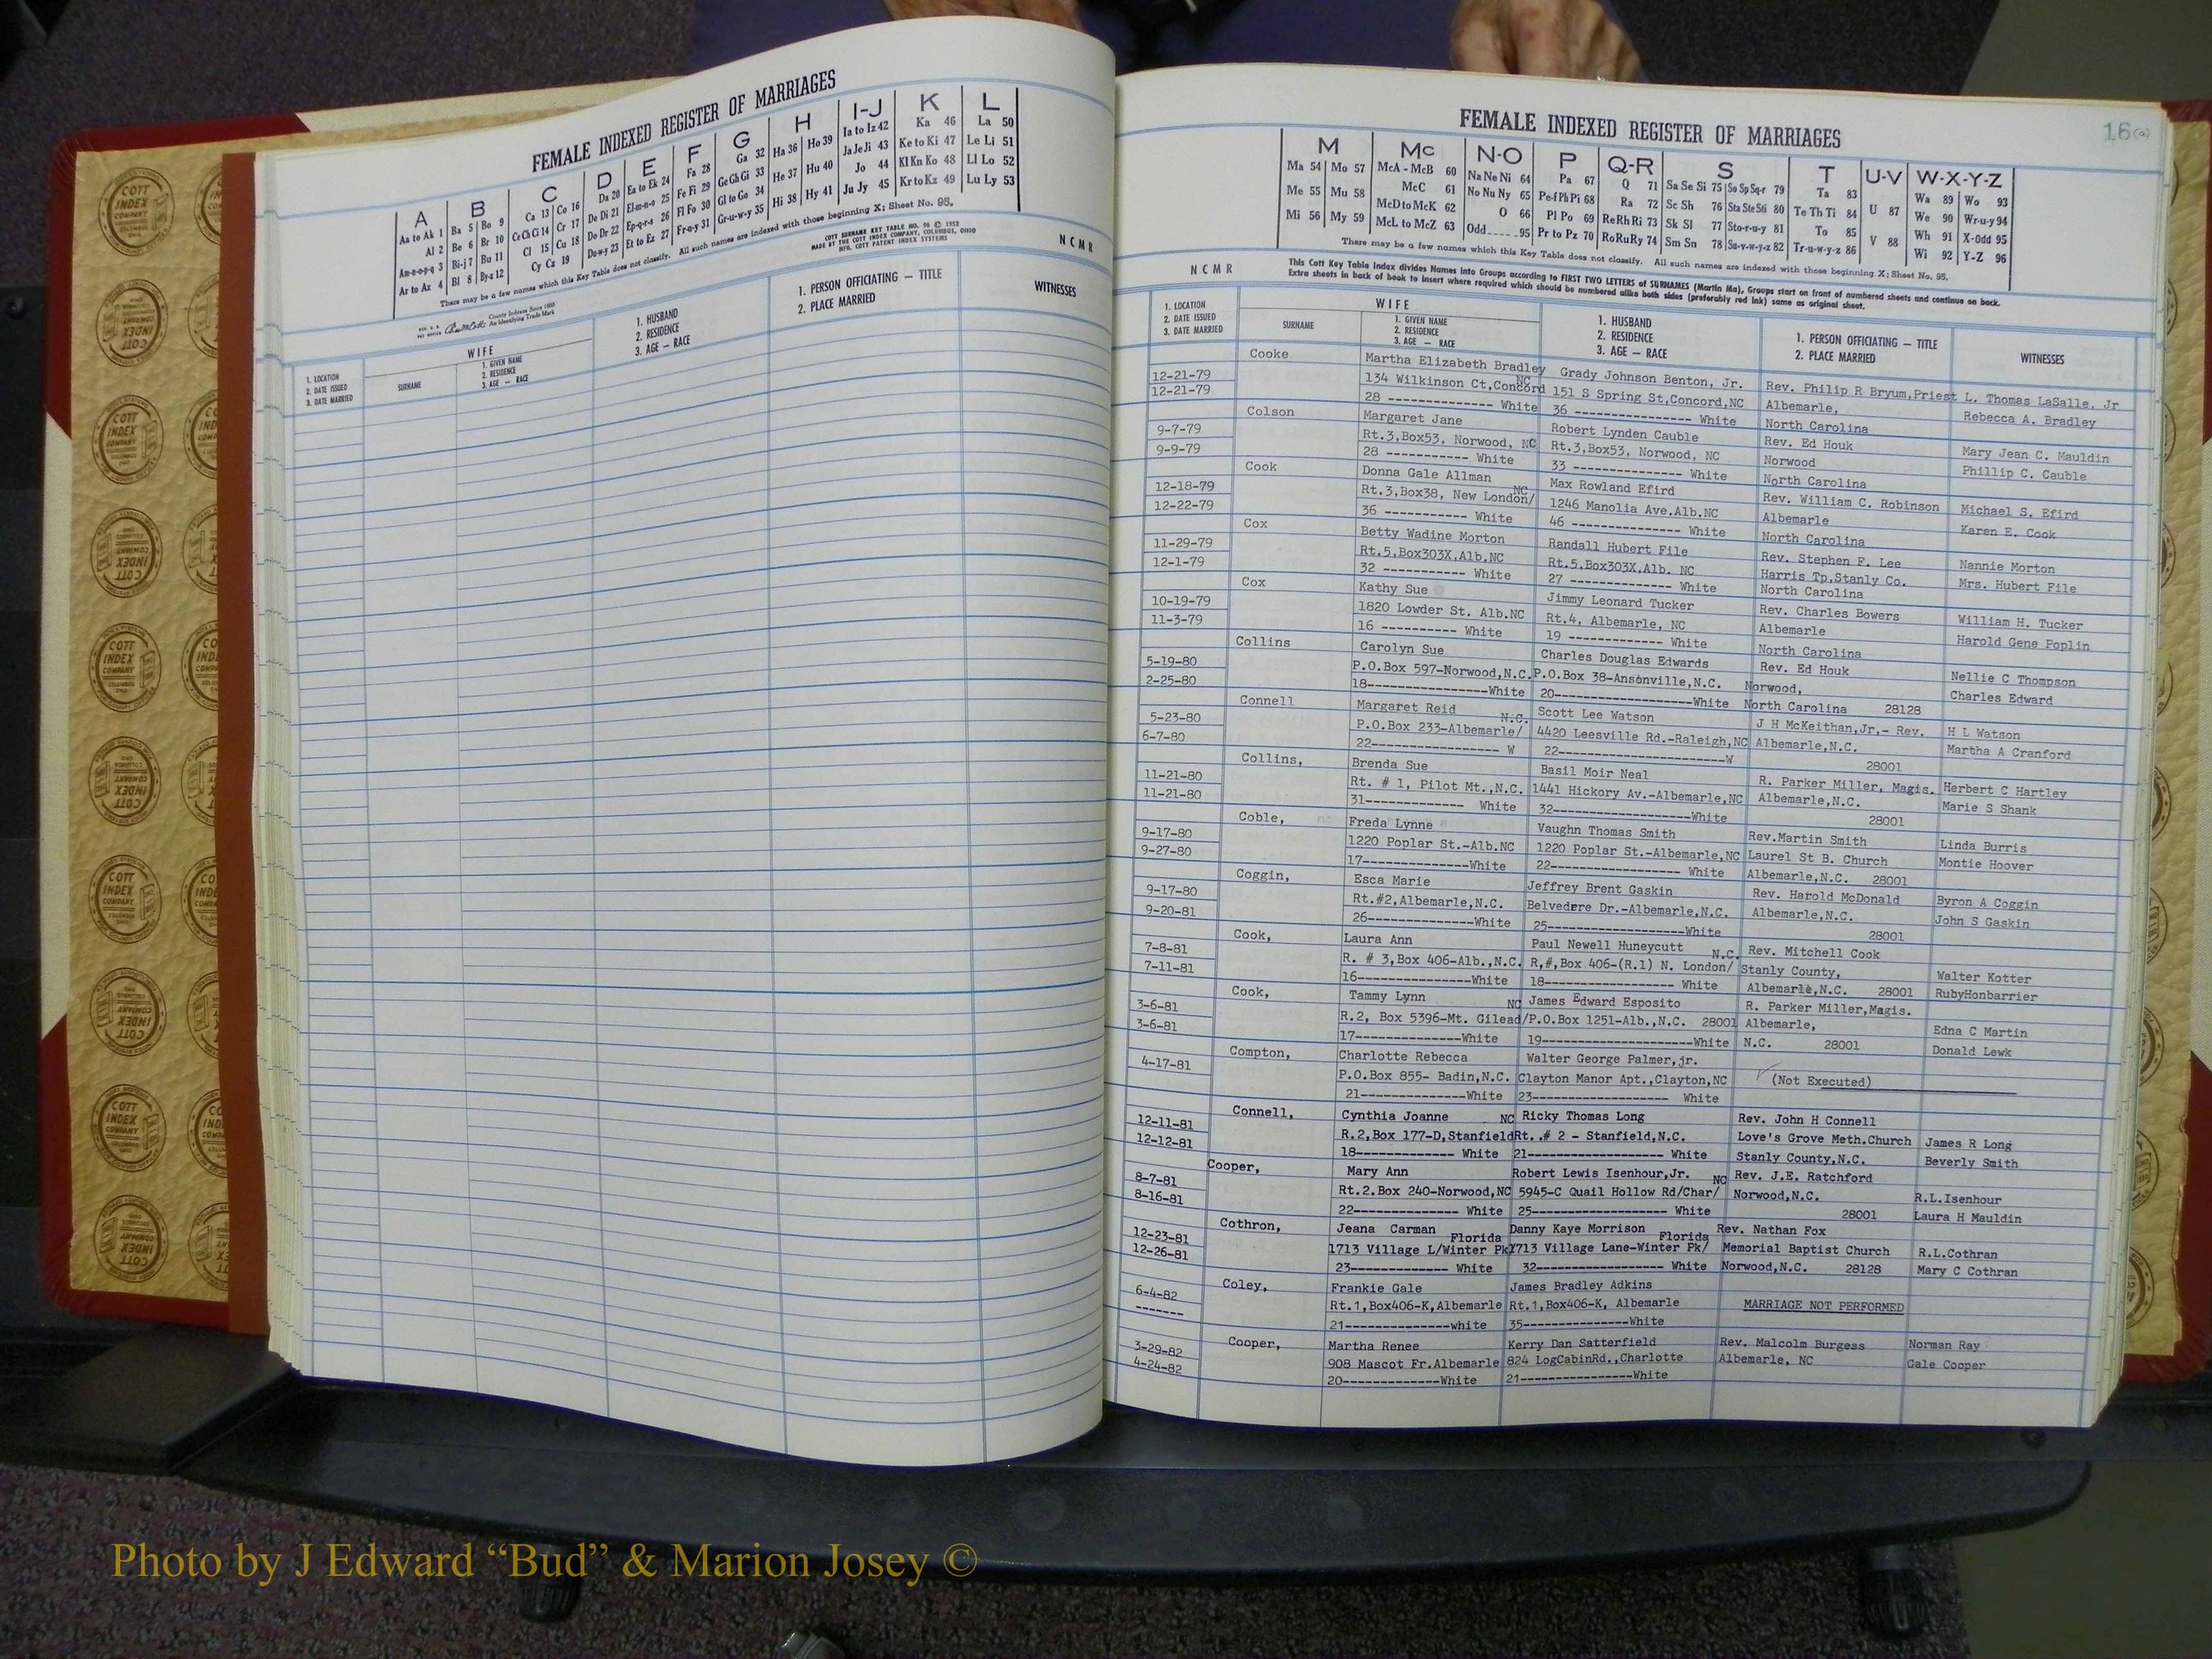 FEMALE INDEXED REGISTER OF MARRIAGES
A B C D E F G H I-J K L
Aa to Ak 1 Ba 5 Bo 9 Ca 13 Co 16 Da 20 Ea to Ek 24 Fa 28 Ga 32 Ha 36 Ho 39 Ia to Iz 42 Ka 46 La 50
Al 2 Be 6 Br 10 Ce Ch Ci 14 Cr 17 De Di 21 El-m-n-o 25 Fe Fi 29 Ge Gh Gi 33 He 37 Hu 40 Ja Je Ji 43 Ke to Ki 47 Le Li 51
Am-n-o-p-q 3 Bi-j 7 Bu 11 Cl 15 Cu 18 Do Dr 22 Ep-q-r-s 26 Fl Fo 30 Gl to Go 34 Hi 38 Hy 41 Jo 44 Kl Kn Ko 48 Ll Lo 52
Ar to Az 4 Bl 8 By-z 12 Cy Cz 19 Du-w-y 23 Et to Ez 27 Fr-u-y 31 Gr-u-w-y 35 Ju Jy 45 Kr to Kz 49 Lu Ly 53
There may be a few names which this Key Table does not classify. All such names are indexed with those beginning X; Sheet No. 95.
COTT SURNAME KEY TABLE NO. 96 © 1952
MADE BY THE COTT INDEX COMPANY, COLUMBUS, OHIO
MFG. COTT PATENT INDEX SYSTEMS
NCMR
County Indexes Since 1888
An Identifying Trade Mark
1. LOCATION
2. DATE ISSUED
3. DATE MARRIED
WIFE
SURNAME
1. GIVEN NAME
2. RESIDENCE
3. AGE — RACE
1. HUSBAND
2. RESIDENCE
3. AGE — RACE
1. PERSON OFFICIATING — TITLE
2. PLACE MARRIED
WITNESSES
16(a)
FEMALE INDEXED REGISTER OF MARRIAGES
M Mc N-O P Q-R S T U-V W-X-Y-Z
Ma 54 Mo 57 McA - McB 60 Na Ne Ni 64 Pa 67 Q 71 Sa Se Si 75 So Sp Sq-r 79 Ta 83 U 87 Wa 89 Wo 93
Me 55 Mu 58 McC 61 No Nu Ny 65 Pe-f Ph Pi 68 Ra 72 Sc Sh 76 Sta Ste Sti 80 Te Th Ti 84 V 88 We 90 Wr-u-y 94
Mi 56 My 59 McD to McK 62 O 66 Pl Po 69 Re Rh Ri 73 Sk Sl 77 Sto-r-u-y 81 To 85 Wh 91 X-Odd 95
McL to McZ 63 Odd 95 Pr to Pz 70 Ro Ru Ry 74 Sm Sn 78 Su-v-w-y-z 82 Tr-u-w-y-z 86 Wi 92 Y-Z 96
There may be a few names which this Key Table does not classify. All such names are indexed with those beginning X; Sheet No. 95.
This Cott Key Table Index divides Names into Groups according to FIRST TWO LETTERS of SURNAMES (Martin Ma), Groups start on front of numbered sheets and continue on back.
Extra sheets in back of book to insert where required which should be numbered alike both sides (preferably red ink) same as original sheet.
NCMR
1. LOCATION
2. DATE ISSUED
3. DATE MARRIED
WIFE
SURNAME
1. GIVEN NAME
2. RESIDENCE
3. AGE — RACE
1. HUSBAND
2. RESIDENCE
3. AGE — RACE
1. PERSON OFFICIATING — TITLE
2. PLACE MARRIED
WITNESSES
Cooke Martha Elizabeth Bradley Grady Johnson Benton, Jr. Rev. Philip R Bryum,Priest L. Thomas LaSalle, Jr
12-21-79 134 Wilkinson Ct,Concord NC 151 S Spring St,Concord,NC Albemarle, Rebecca A. Bradley
12-21-79 28 -------------- White 36 ---------------- White North Carolina
Colson Margaret Jane Robert Lynden Cauble Rev. Ed Houk Mary Jean C. Mauldin
9-7-79 Rt.3,Box53, Norwood, NC Rt.3,Box53, Norwood, NC Norwood Phillip C. Cauble
9-9-79 28 ----------- White 33 -------------- White North Carolina
Cook Donna Gale Allman Max Rowland Efird Rev. William C. Robinson Michael S. Efird
12-18-79 Rt.3,Box38, New London/ NC 1246 Manolia Ave.Alb.NC Albemarle Karen E. Cook
12-22-79 36 ----------- White 46 -------------- White North Carolina
Cox Betty Wadine Morton Randall Hubert File Rev. Stephen F. Lee Nannie Morton
11-29-79 Rt.5,Box303X,Alb.NC Rt.5,Box303X,Alb. NC Harris Tp,Stanly Co. Mrs. Hubert File
12-1-79 32 ----------- White 27 ------------- White North Carolina
Cox Kathy Sue Jimmy Leonard Tucker Rev. Charles Bowers William H. Tucker
10-19-79 1820 Lowder St. Alb.NC Rt.4, Albemarle, NC Albemarle Harold Gene Poplin
11-3-79 16 ---------- White 19 ------------ White North Carolina
Collins Carolyn Sue Charles Douglas Edwards Rev. Ed Houk Nellie C Thompson
5-19-80 P.O.Box 597-Norwood,N.C. P.O.Box 38-Ansonville,N.C. Norwood, Charles Edward
2-25-80 18----------------White 20----------------White North Carolina 28128
Connell Margaret Reid Scott Lee Watson J H McKeithan,Jr,- Rev. H L Watson
5-23-80 P.O.Box 233-Albemarle/ N.C. 4420 Leesville Rd.-Raleigh,NC Albemarle,N.C. Martha A Cranford
6-7-80 22---------------- W 22--------------------W 28001
Collins, Brenda Sue Basil Moir Neal R. Parker Miller, Magis. Herbert C Hartley
11-21-80 Rt. # 1, Pilot Mt.,N.C. 1441 Hickory Av.-Albemarle,NC Albemarle,N.C. Marie S Shank
11-21-80 31------------- White 32----------------White 28001
Coble, Freda Lynne Vaughn Thomas Smith Rev.Martin Smith Linda Burris
9-17-80 1220 Poplar St.-Alb.NC 1220 Poplar St.-Albemarle,NC Laurel St B. Church Montie Hoover
9-27-80 17--------------White 22---------------- White Albemarle,N.C. 28001
Coggin, Esca Marie Jeffrey Brent Gaskin Rev. Harold McDonald Byron A Coggin
9-17-80 Rt.#2,Albemarle,N.C. Belvedere Dr.-Albemarle,N.C. Albemarle,N.C. John S Gaskin
9-20-81 26--------------White 25----------------White 28001
Cook, Laura Ann Paul Newell Huneycutt Rev. Mitchell Cook
7-8-81 R. # 3,Box 406-Alb.,N.C. R,#,Box 406-(R.1) N. London/ N.C. Stanly County, Walter Kotter
7-11-81 16---------------White 18---------------- White Albemarle,N.C. 28001 RubyHonbarrier
Cook, Tammy Lynn James Edward Esposito R. Parker Miller,Magis.
3-6-81 R.2, Box 5396-Mt. Gilead/ NC P.O.Box 1251-Alb.,N.C. 28001 Albemarle, Edna C Martin
3-6-81 17--------------White 19------------------White N.C. 28001 Donald Lewk
Compton, Charlotte Rebecca Walter George Palmer,jr.
4-17-81 P.O.Box 855- Badin,N.C. Clayton Manor Apt.,Clayton,NC (Not Executed)
21--------------White 23------------------ White
Connell, Cynthia Joanne NC Ricky Thomas Long Rev. John H Connell
12-11-81 R.2,Box 177-D,Stanfield Rt. .# 2 - Stanfield,N.C. Love's Grove Meth.Church James R Long
12-12-81 18------------- White 21------------------ White Stanly County,N.C. Beverly Smith
Cooper, Mary Ann Robert Lewis Isenhour,Jr. Rev. J.E. Ratchford
8-7-81 Rt.2.Box 240-Norwood,NC 5945-C Quail Hollow Rd/Char/ NC Norwood,N.C. R.L.Isenhour
8-16-81 22-------------- White 25------------------ White 28001 Laura H Mauldin
Cothron, Jeana Carman Danny Kaye Morrison Rev. Nathan Fox
12-23-81 1713 Village L/Winter Pk/ Florida 1713 Village Lane-Winter Pk/ Florida Memorial Baptist Church R.L.Cothran
12-26-81 23------------- White 32----------------- White Norwood,N.C. 28128 Mary C Cothran
Coley, Frankie Gale James Bradley Adkins
6-4-82 Rt.1,Box406-K,Albemarle Rt.1,Box406-K, Albemarle MARRIAGE NOT PERFORMED
------- 21--------------white 35----------------White
Cooper, Martha Renee Kerry Dan Satterfield Rev. Malcolm Burgess Norman Ray
3-29-82 908 Mascot Fr.Albemarle 824 LogCabinRd.,Charlotte Albemarle, NC Gale Cooper
4-24-82 20-------------White 21----------------White
COTT INDEX COMPANY COLUMBUS OHIO
Photo by J Edward “Bud” & Marion Josey ©